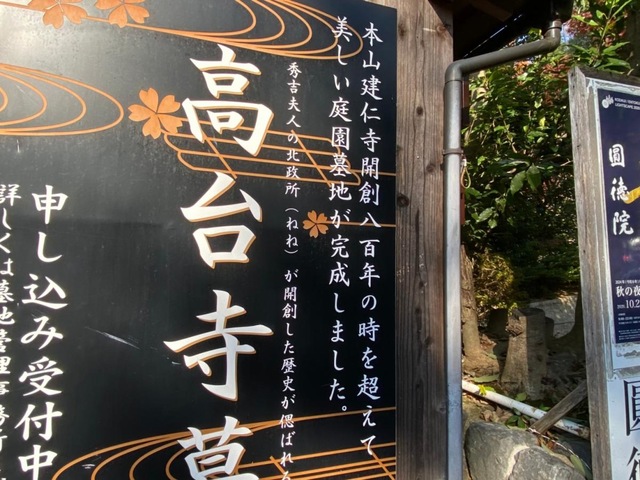 本山建仁寺開創八百年の時を超えて
美しい庭園墓地が完成しました。
秀吉夫人の北政所（ねね）が開創した歴史が偲ばれる
高台寺墓
申し込み受付中
詳しくは墓地管理事務所
圓徳院
秋の夜
10.2
圓徳